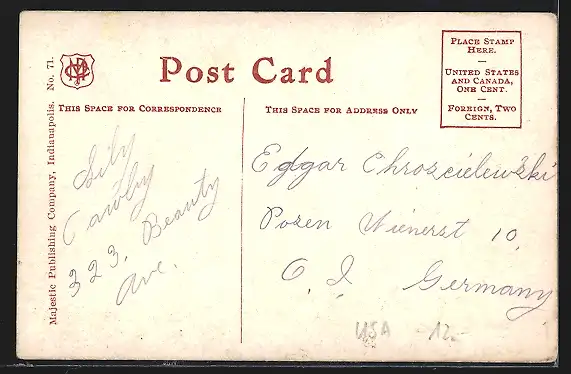 Post Card
PLACE STAMP
HERE.
—
UNITED STATES
AND CANADA,
ONE CENT.
—
FOREIGN, TWO
CENTS.
THIS SPACE FOR CORRESPONDENCE
THIS SPACE FOR ADDRESS ONLY
Majestic Publishing Company, Indianapolis. No. 71.
323, Beauty
Ave.
Edgar Chroscielewski
Posen Wienerst 10.
Germany
USA 12.-